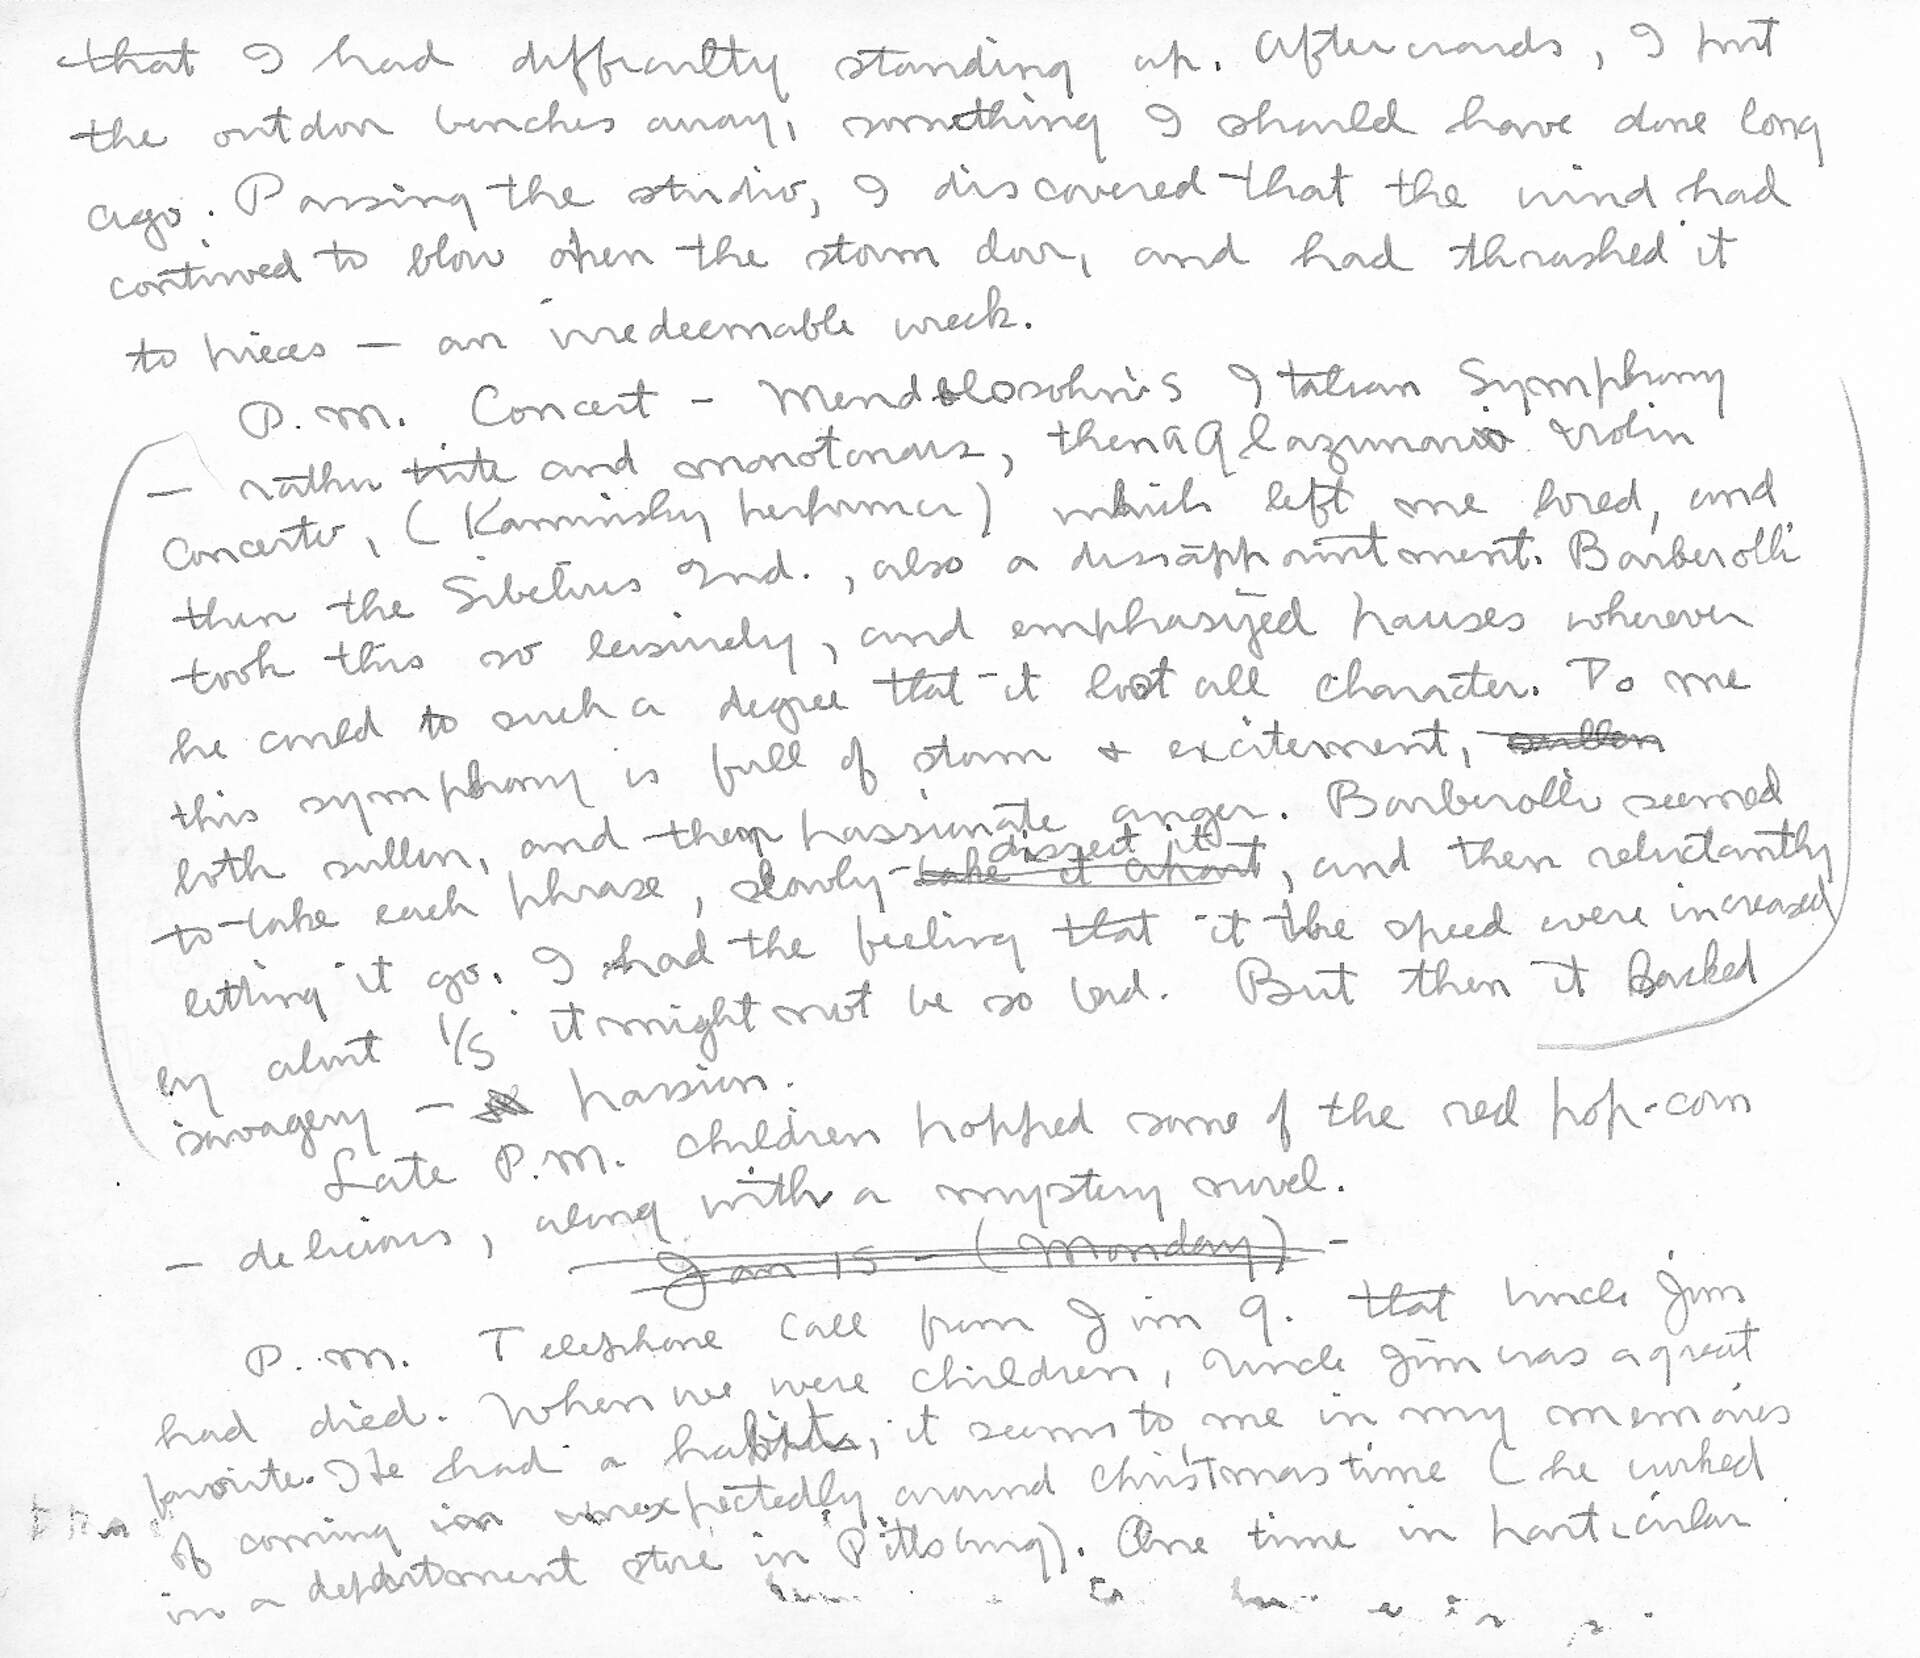 that I had difficulty standing up. Afterwards, I put
the outdoor benches away, something I should have done long
ago. Passing the studio, I discovered that the wind had
continued to blow open the storm door, and had thrashed it
to pieces — an irredeemable wreck.
P.M. Concert - Mendelssohn's Italian Symphony
— rather trite and monotonous, then a Glazunov violin
Concerto, (Kaminsky performer) which left me bored, and
then the Sibelius 2nd., also a dissappointment. Barberolli
took this so leisurely, and emphasized pauses wherever
he could to such a degree that it lost all character. To me
this symphony is full of storm & excitement, sullen
both sullen, and then passionate anger. Barberolli seemed
dissect it
to take each phrase, slowly take it apart, and then reluctantly
letting it go. I had the feeling that if the speed were increased
by about 1/5 it might not be so bad. But then it lacked
savagery — passion.
Late P.M. children popped some of the red pop-corn
— delicious, along with a mystery novel.
Jan 15 - (Monday) -
P.M. Telephone call from Jim G. that Uncle Jim
had died. When we were children, Uncle Jim was a great
favorite. He had a habit, it seems to me in my memories
of coming in unexpectedly around Christmas time (he worked
in a department store in Pittsburg). One time in particular